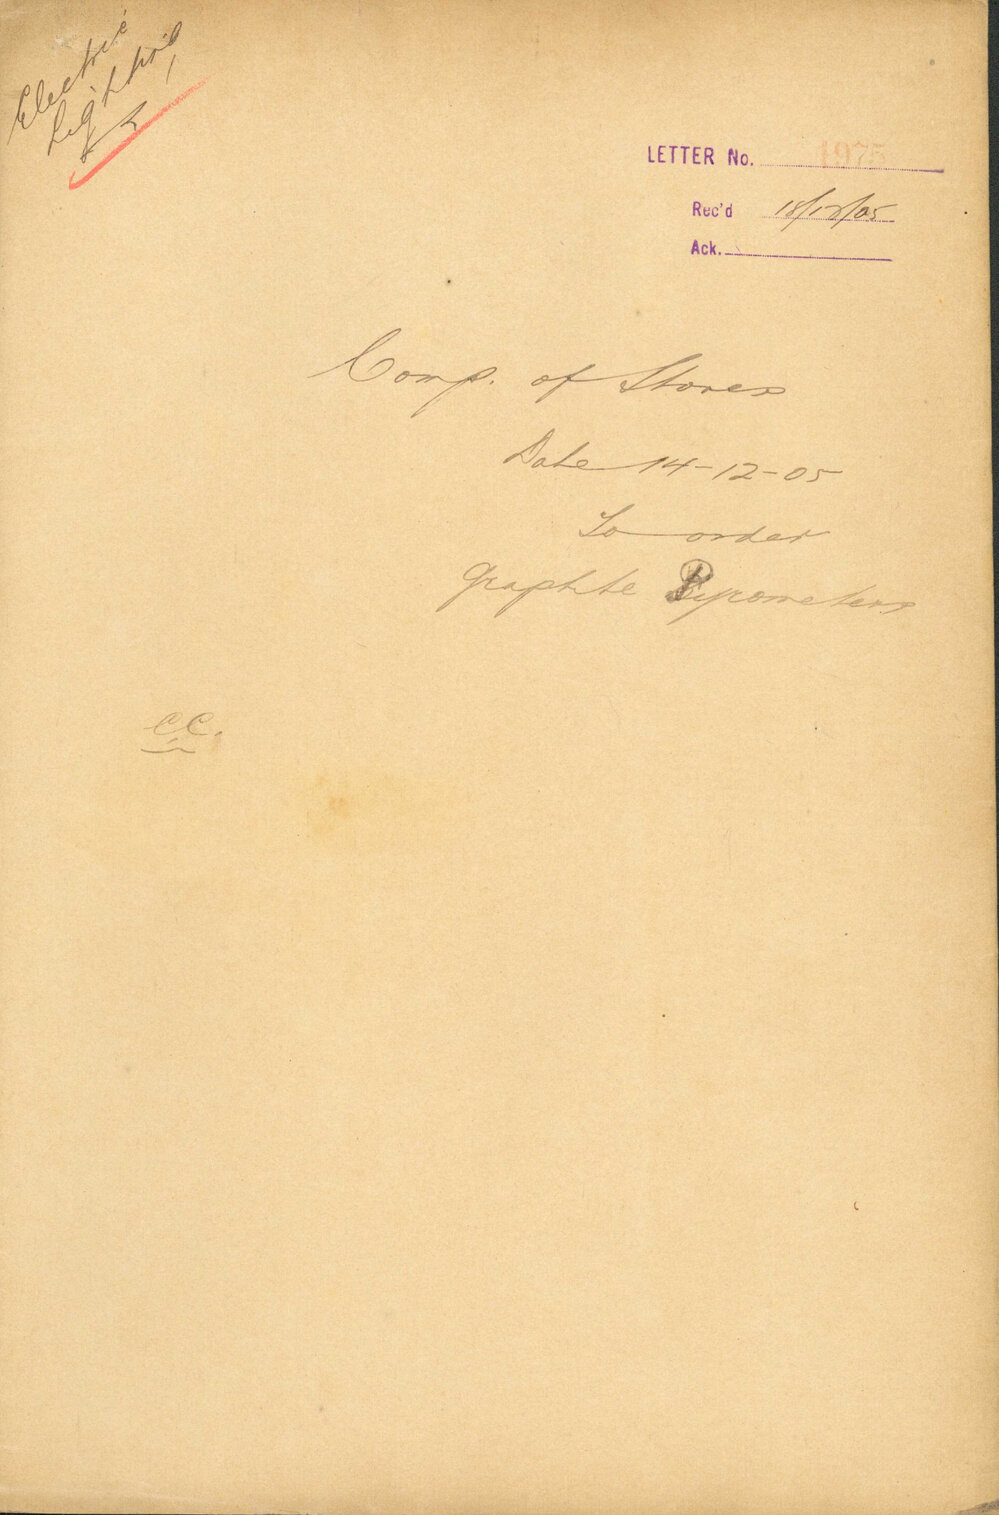 Electric
Lighting
LETTER No. 1975
Rec'd 18/12/05
Ack.
Comp. of Stores
Date 14-12-05
To order
Graphite Pyrometers
CC.